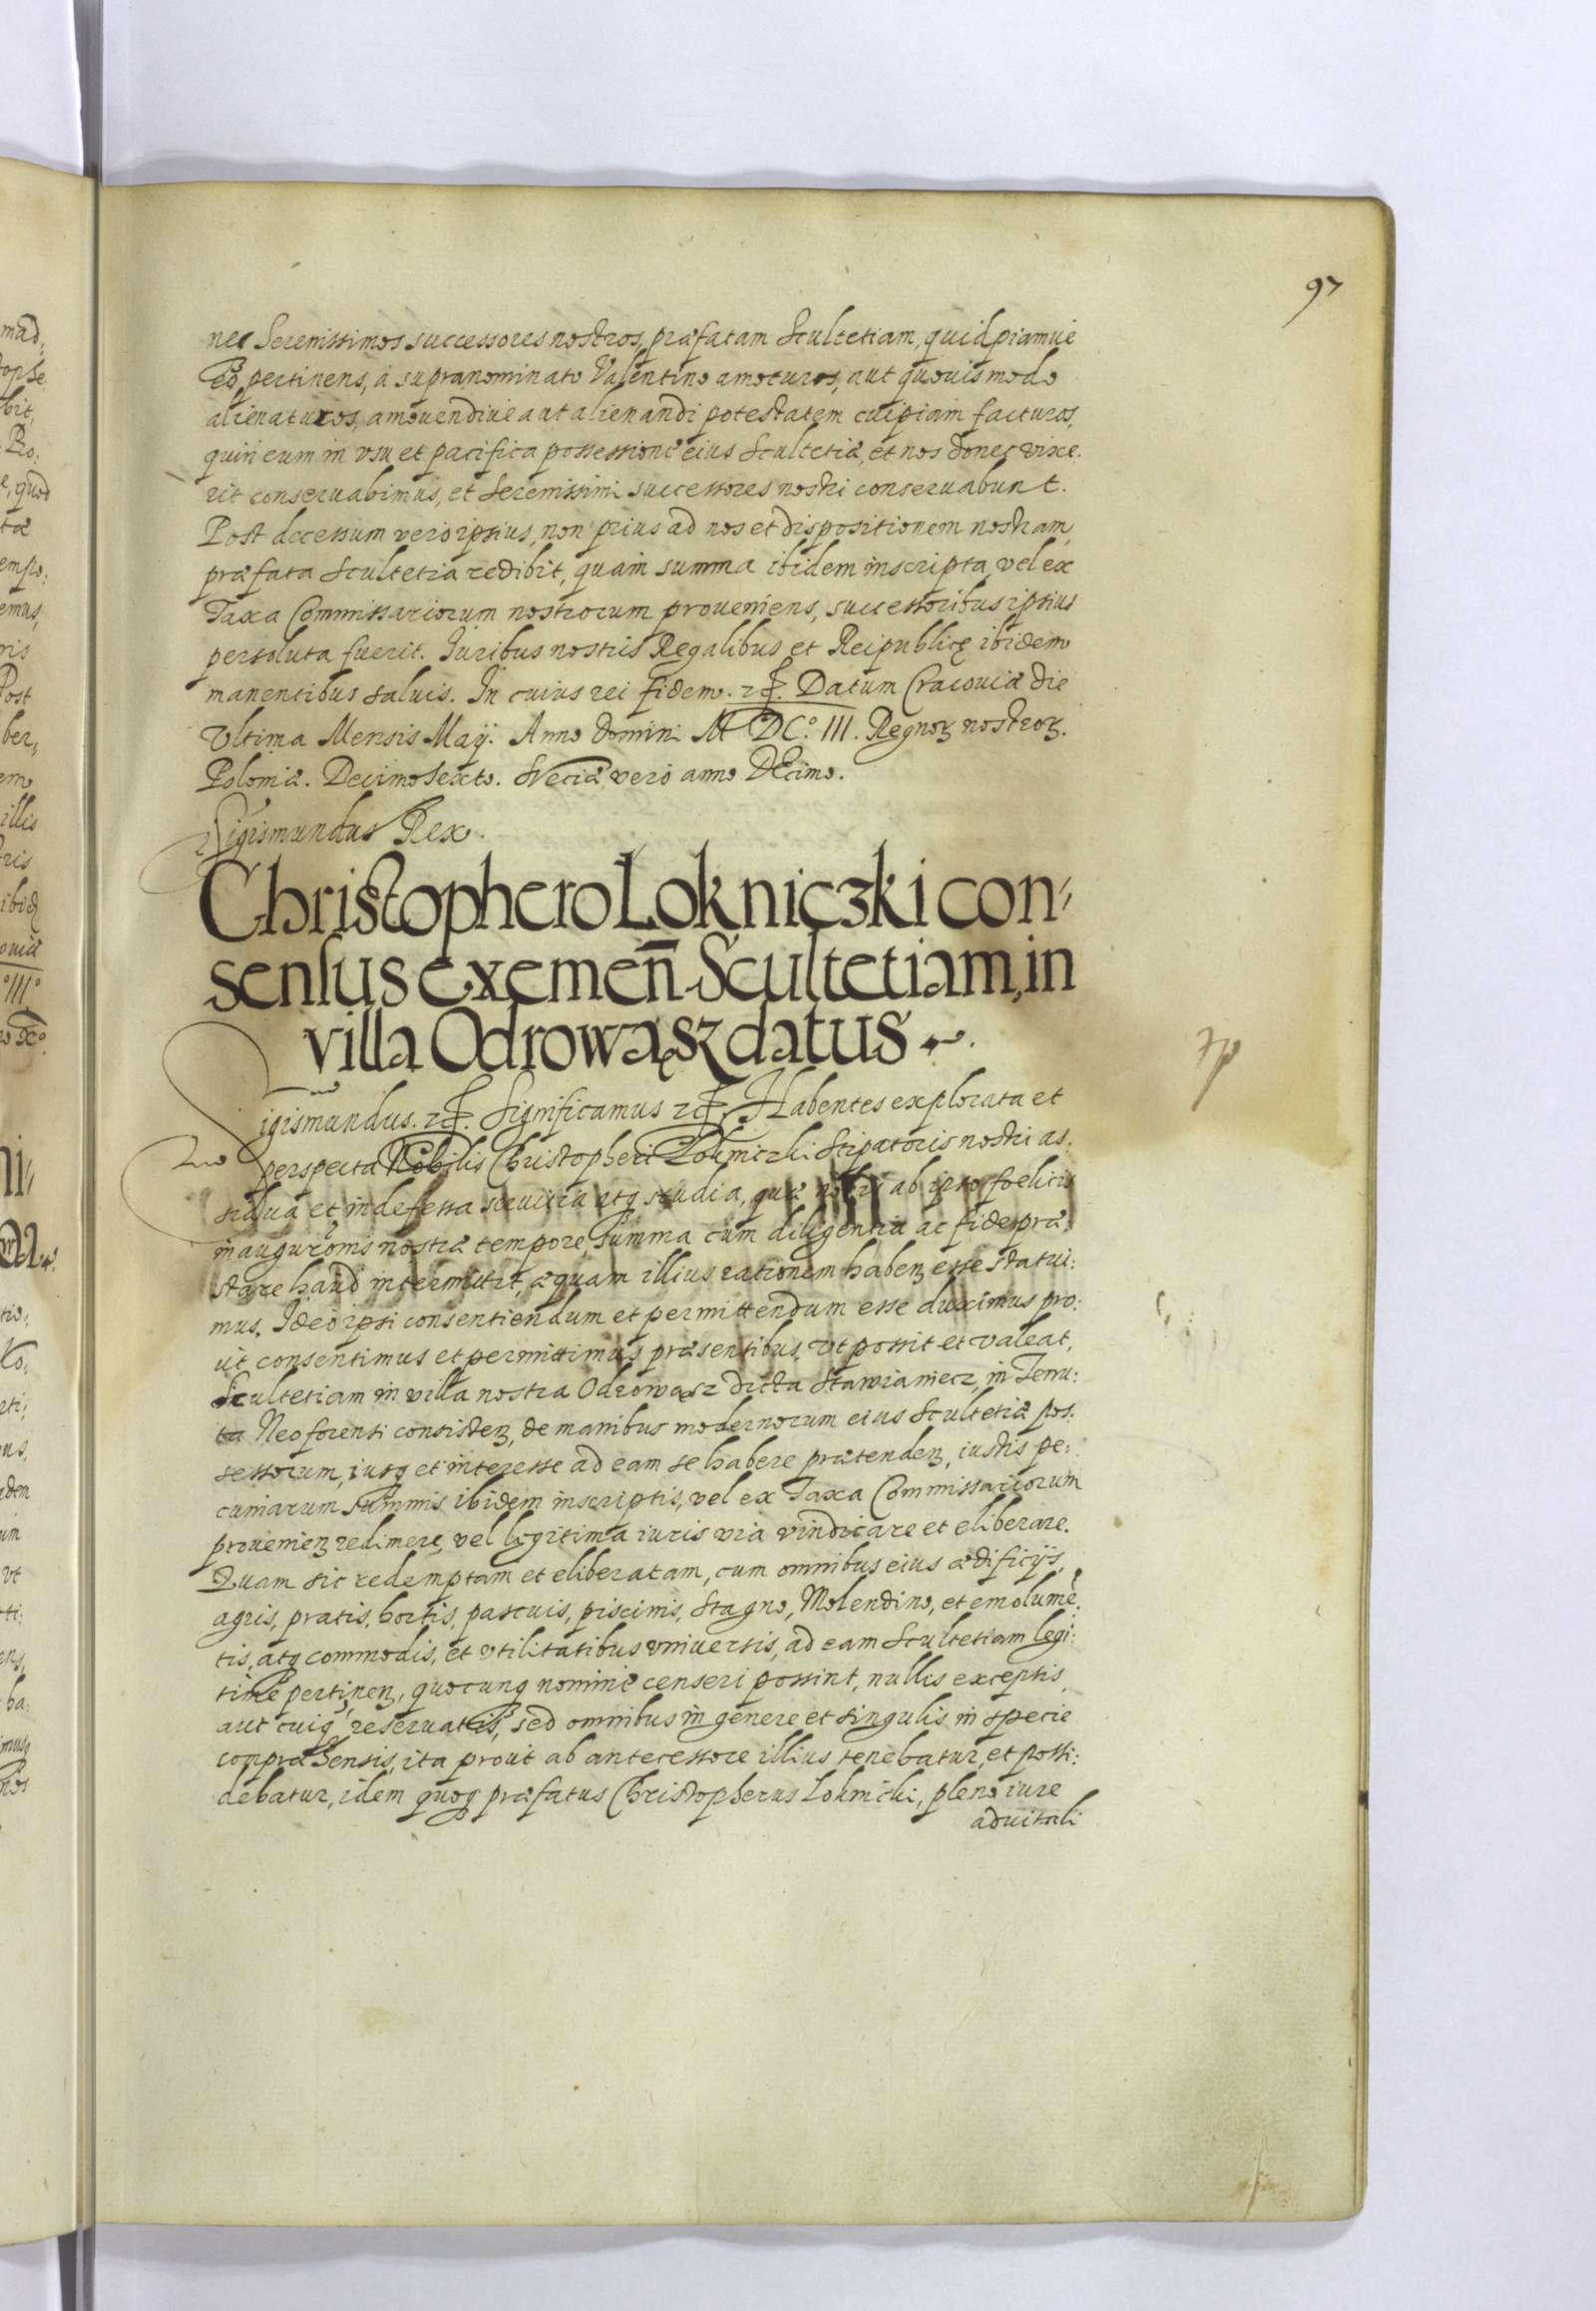 97
nec Serenissimos successores nostros, præfatam Scultetiam, quidpiamue
eò pertinens, á supranominato Valentino amoturos, aut quouis modo
alienaturos, amouendiue aut alienandi potestatem cuipiam facturos,
quin eum in vsu et pacifica possessione eius Scultetiæ, et nos donec vixe:
rit conseruabimus, et Serenissimi successores nostri conseruabunt.
Post decessum verò ipsius, non prius ad nos et dispositionem nostram,
præfata Scultetia redibit, quàm summa ibidem inscripta, vel ex
Taxa Commissariorum nostrorum proueniens, successoribus ipsius
persoluta fuerit. Iuribus nostris Regalibus et Reipublicę ibidem
manentibus saluis. In cuius rei fidem. Datum Cracouiæ die
Vltima Mensis Maij. Anno Domini M DC.° III. Regnoꝝ nostroꝝ.
Poloniæ. Decimosexto. Sveciæ verò anno Decimo.
Sigismundus Rex.
Christophero Lokniczki con-
sensus exemen̄. Scultetiam, in
villa Odrowąsz datus
Sigismundus. Significamus Habentes explorata et
perspecta Nobilis Christopheri Lokniczki Stipatoris nostri as:
sidua et indefessa seruitia atq studia, quæ nobis ab ipso fœlicis
inauguroīnis nostræ tempore, summa cum diligentia ac fide præ:
stare haud intermittit, æquam illius rationem habenꝫ esse statui:
mus. Ideò ipsi consentiendum et permittendum esse duximus pro:
ut consentimus et permittimus præsentibus, vt possit et valeat,
Scultetiam in villa nostra Odrowąsz dicta Stawianiecz, in Tenu:
ta Neoforensi consistenꝫ, de manibus modernorum eius Scultetiæ pos:
sessorum, iusq et interesse ad eam se habere prætendenꝫ, iustis pe:
cuniarum summis ibidem inscriptis, vel ex Taxa Commissariorum
prouenienꝫ redimere, vel legitima iuris via vindicare et eliberare.
Quam sic redemptam et eliberatam, cum omnibus eius ædificijs,
agris, pratis, hortis, pascuis, piscinis, Stagno, Molendino, et emolumē:
tis, atq commodis, et vtilitatibus vniuersis, ad eam Scultetiam legi:
timè pertinenꝫ, quocunq nomine censeri possint, nullis exceptis,
aut cuiq reseruatis, sed omnibus in genere et singulis in specie
compræhensis, ita prout ab antecessore illius tenebatur, et possi:
debatur, idem quoq præfatus Christopherus Loknicki, pleno iure
aduitali